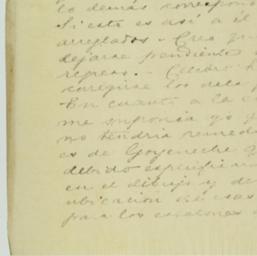 lo demás correspond
Si esto es así a él
arreglados. - Creo que
dejarse pendiente
regreso. - Celebro
corregirse los def
En cuanto a la c
me imponía yo y
no tendría remed
es de Goyeneche q
debido especificar
en el dibujo y de
ubicación de esas
para los escalones